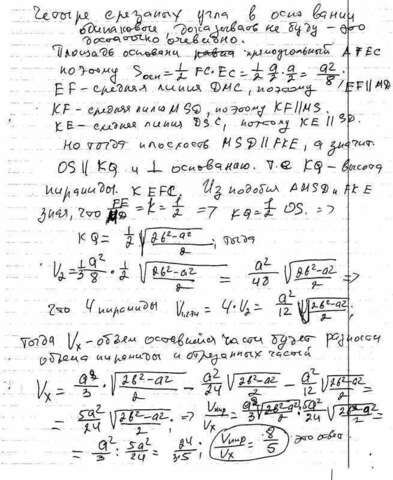 Четыре срезаных угла в основании
одинаковые (доказывать не буду - это
достаточно очевидно.
Площадь основани прямоугольный ΔFEC
поэтому Sосн = 1/2 FC·EC = 1/2 a/2 · a/2 = a²/8
EF - средняя линия DMC, поэтому EF∥MD
KF - средняя линия MSD, поэтому KF∥MS.
KE - средняя линия DSC, поэтому KE∥SD.
Но тогда плоскость MSD∥FKE, а значит
OS∥KQ и ⊥ основанаю. т.е KQ - высота
пирамиды KEFC. Из подобия ΔMSD и FKE
зная, что FE/MD = k = 1/2 => KQ = 1/2 OS. =>
KQ = 1/2 √(2b²-a²)/2; тогда
V₂ = 1/3 a²/8 · 1/2 √(2b²-a²)/2 = a²/48 √(2b²-a²)/2 =>
Что 4 пирамиды = 4·V₂ = a²/12 √(2b²-a²)/2;
Тогда Vx - объем оставшийся части будет разности
объема пирамиды и отрезанных частей
Vx = a²/3 · √(2b²-a²)/2 - a²/24 √(2b²-a²)/2 - a²/12 √(2b²-a²)/2 =
= 5a²/24 √(2b²-a²)/2 ; => Vпир/Vx = a²/3 √(2b²-a²)/2 : 5a²/24 √(2b²-a²)/2 =
= a²/3 : 5a²/24 = 24/3·5 ; Vпир/Vx = 8/5 это ответ.